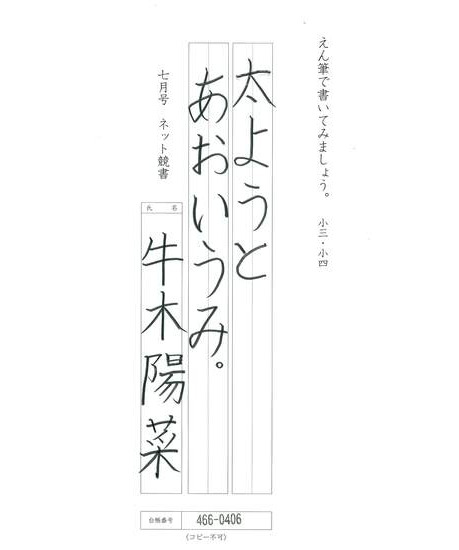 えん筆で書いてみましょう。 小三・小四
太ようと
あおいうみ。
七月号 ネット競書
氏 名
牛木陽菜
台帳番号 466-0406
(コピー不可)